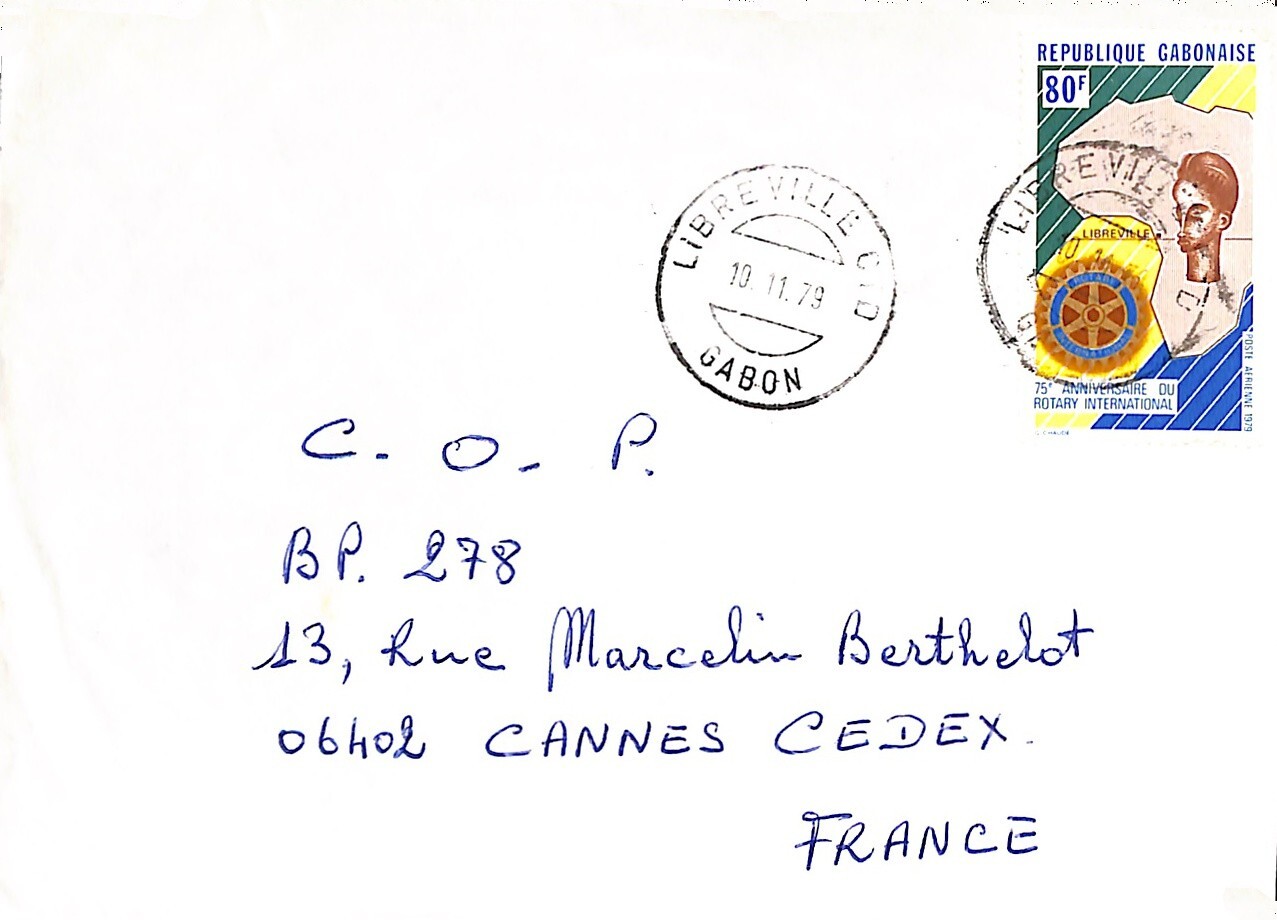 REPUBLIQUE GABONAISE
80F
LIBREVILLE
ROTARY
INTERNATIONAL
75e ANNIVERSAIRE DU
ROTARY INTERNATIONAL
POSTE AERIENNE 1979
G. CHAUDE
LIBREVILLE
10. 11. 79
GABON
LIBREVILLE
C. O. P.
BP. 278
13, Rue Marcelin Berthelot
06402 CANNES CEDEX.
FRANCE